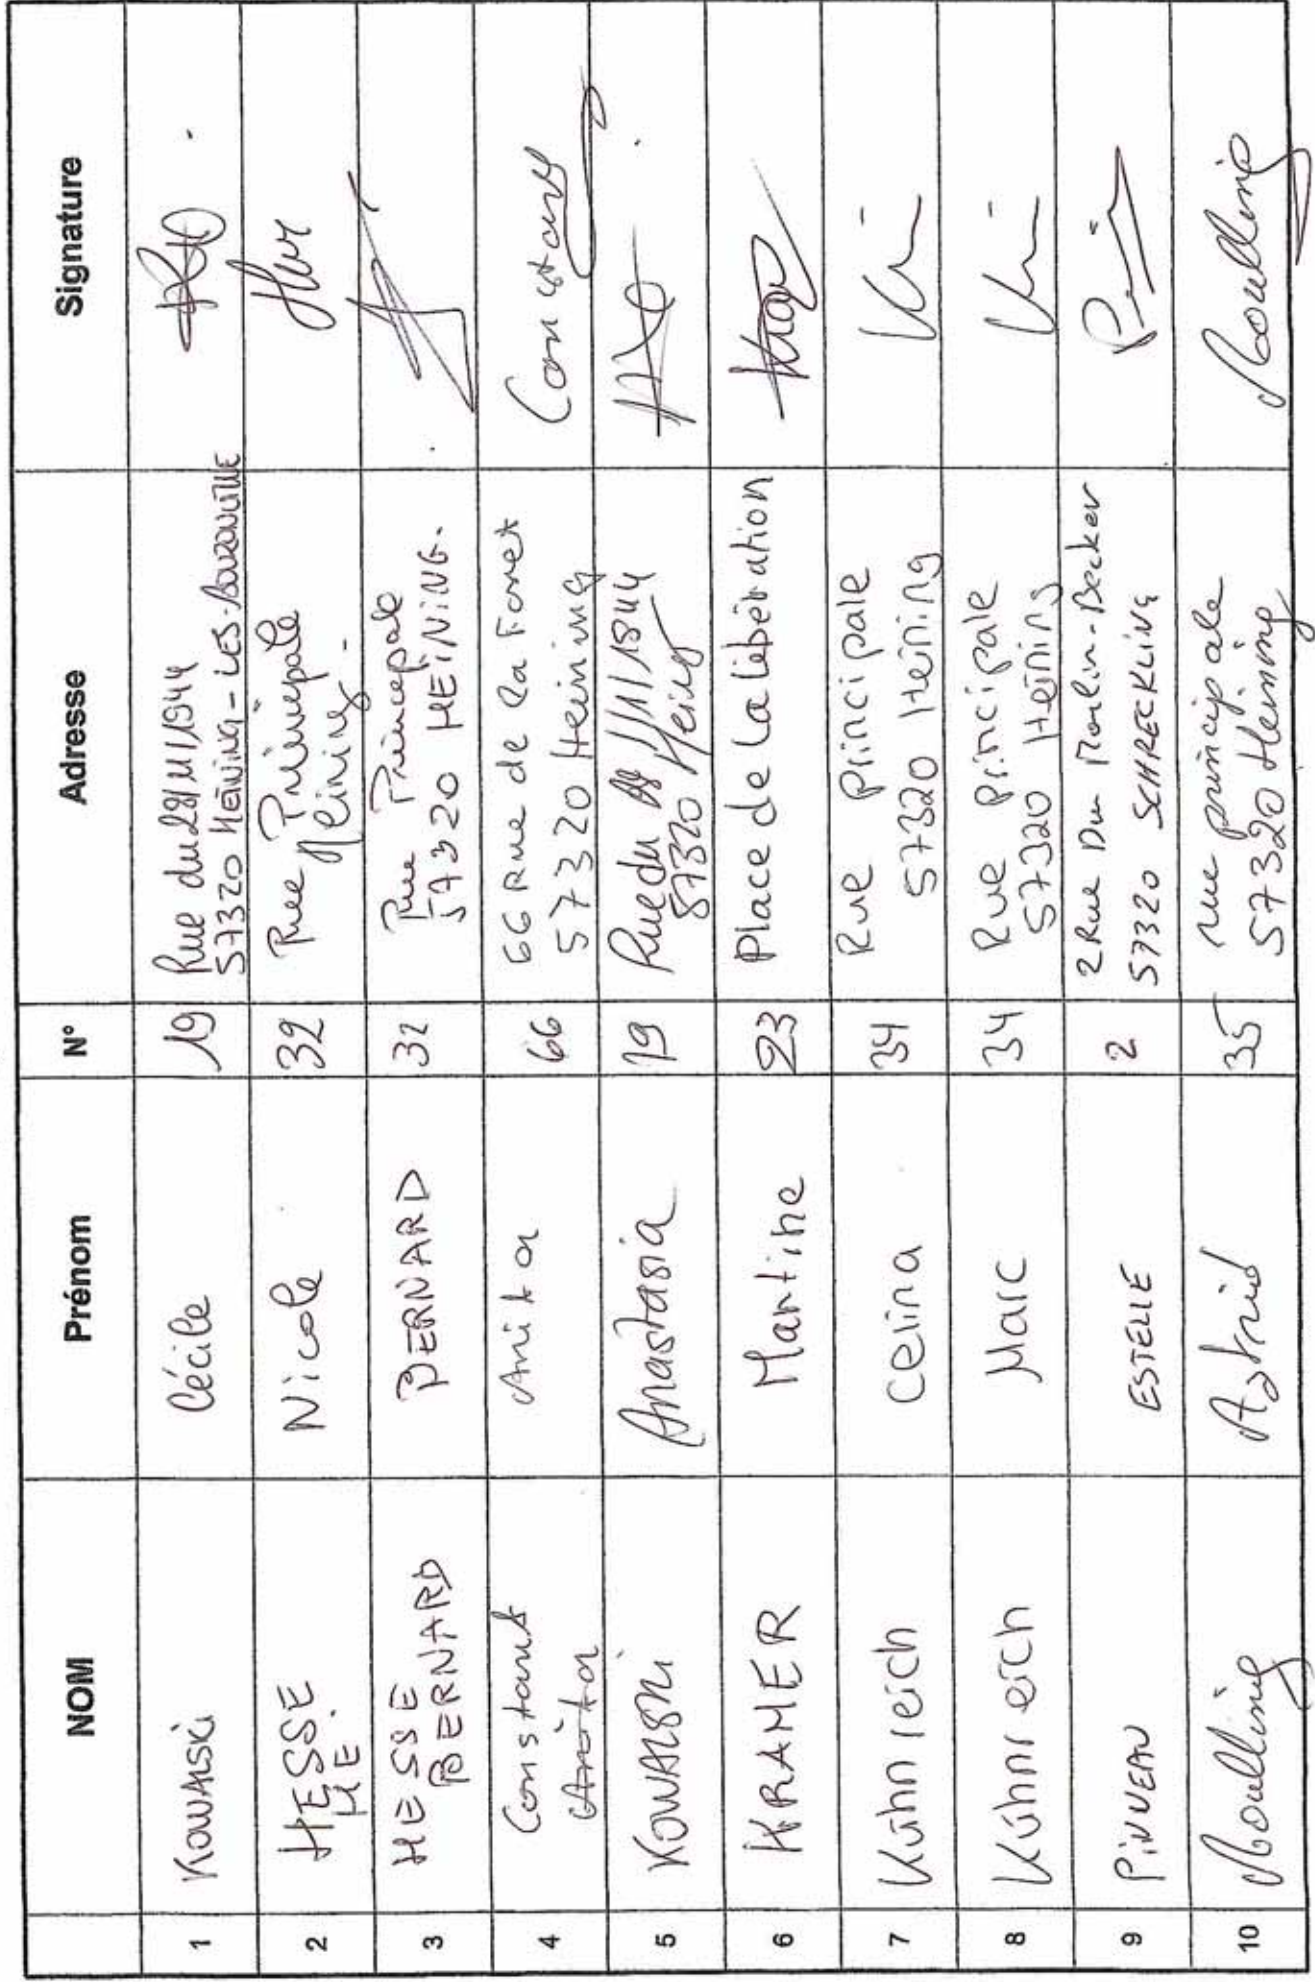 NOM Prénom N° Adresse Signature
1 KOWALSKi Cécile 19 Rue du 28/11/1944
57320 HEiNiNG-LES-BOUZONVILLE
2 HESSE Nicole 32 Rue Principale
ME. Heining.
3 HESSE BERNARD 32 Rue Principale
BERNARD 57320 HEiNiNG.
4 Constant Anita 66 66 Rue de la Foret Constant
Anita 57320 Heining
5 KOWALSKi Anastasia 19 Rue du 28/11/1944
57320 Heining
6 KRAMER Martine 23 Place de la libération
7 Kühnreich Celina 34 Rue Principale
57320 Heining
8 Kühnreich Marc 34 Rue Principale
57320 Heining
9 PiNVEAU ESTELLE 2 2 Rue Du Moulin-Becker
57320 SCHRECKLING
10 Moulling Astrid 35 rue principale Moulling
57320 Heining